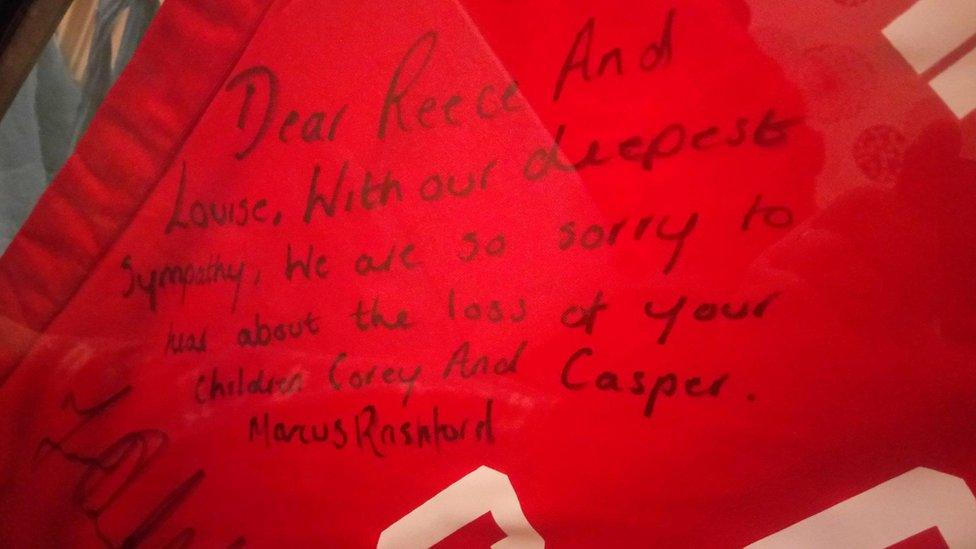 Dear Reece And
Louise, With our deepest
Sympathy, We are so sorry to
hear about the loss of your
children Corey And Casper.
Marcus Rashford